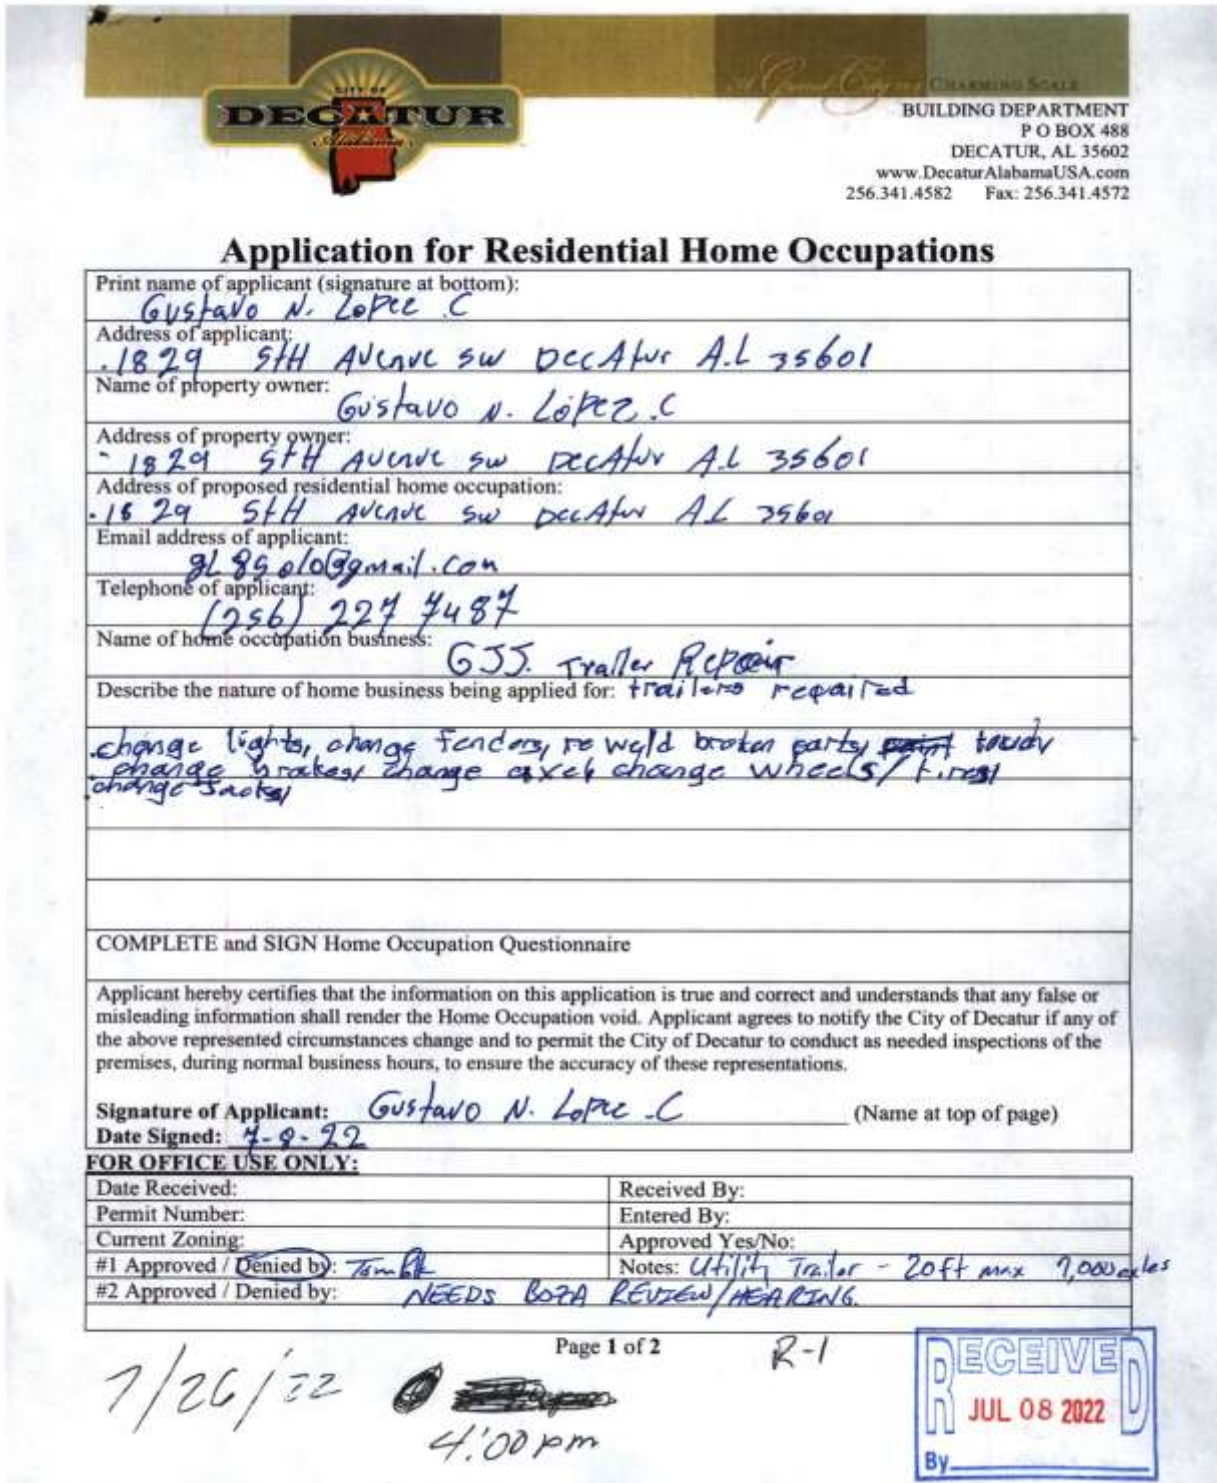 CITY OF
DECATUR
Alabama
A Grand City CHARMING SCALE
BUILDING DEPARTMENT
P O BOX 488
DECATUR, AL 35602
www.DecaturAlabamaUSA.com
256.341.4582 Fax: 256.341.4572
Application for Residential Home Occupations
Print name of applicant (signature at bottom):
Gustavo N. Lopez C
Address of applicant:
.1829 5tH AVenue SW DecAtur A.L 35601
Name of property owner:
Gustavo N. López.C
Address of property owner:
1829 5tH AVenue SW DecAtur A.L 35601
Address of proposed residential home occupation:
.1829 5tH AVenue SW DecAtur AL 35601
Email address of applicant:
@gmail.com
Telephone of applicant:
(256) 227 7487
Name of home occupation business:
GJJ. Trailer Repair
Describe the nature of home business being applied for: trailers repaired
change lights, change fenders, re weld broken parts,
change brakes, change axel change wheels/tires,
change Jacks,
COMPLETE and SIGN Home Occupation Questionnaire
Applicant hereby certifies that the information on this application is true and correct and understands that any false or
misleading information shall render the Home Occupation void. Applicant agrees to notify the City of Decatur if any of
the above represented circumstances change and to permit the City of Decatur to conduct as needed inspections of the
premises, during normal business hours, to ensure the accuracy of these representations.
Signature of Applicant: Gustavo N. Lopez.C (Name at top of page)
Date Signed: 7-8-22
FOR OFFICE USE ONLY:
Date Received: Received By:
Permit Number: Entered By:
Current Zoning: Approved Yes/No:
#1 Approved / Denied by: Tom Notes: Utility Trailer - 20ft max 7,000 axles
#2 Approved / Denied by: NEEDS BOZA REVIEW/HEARING.
Page 1 of 2 R-1
7/26/22
4:00 pm
RECEIVED
JUL 08 2022
By